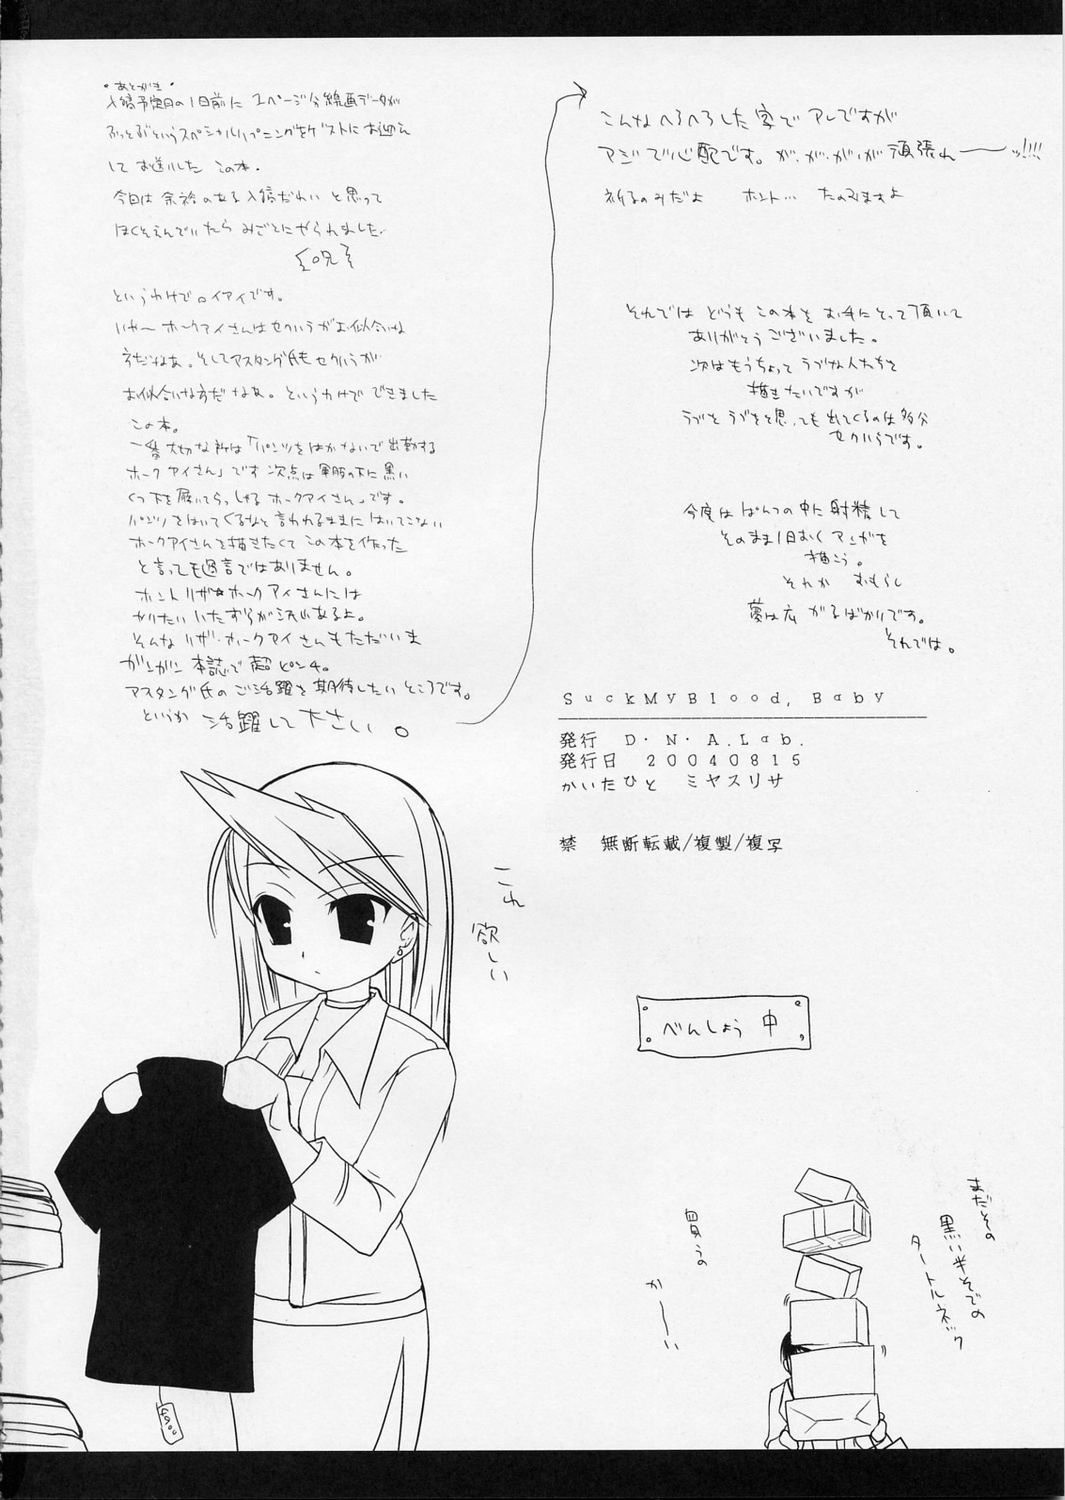 ・あとがき・
入稿予定日の1日前に 1ページ分線画データが
ぶっとぶというスペシャルハプニングをゲストにお迎え
して お送りした この本。
今回は 余裕のある入稿だわい と思って
ほくそえんでいたら みごとにやられました。
というわけでロイアイです。
いやー ホークアイさんはセクハラがお似合いな
方だねぇ。そしてアスタング氏もセクハラが
お似合いな方だ なぁ。というわけで できました
この本。
一番大切な所は「パンツをはかないで出勤する
ホークアイさん」です 次点は軍服の下に黒い
くつ下を履いてらっしゃる ホークアイさん」です。
パンツをはいてくるなと言われるままに はいてこない
ホークアイさんを描きたくて この本を作った
と言っても過言ではありません。
ホントリザ☆ホークアイさんには
かりたい いたずらが沢山あるよ。
そんな リザ・ホークアイさんもただいま
ガンガン 本誌で 超ピンチ。
アスタング氏の ご活躍を期待したい ところです。
というか 活躍して下さい。
こんな へろへろした 字で アレですが
マジで心配です。が、が、が、が 頑張れーーッ!!!!
祈るのみだよ ホント… たのみますよ
それでは どうも この本を お手にとって頂いて
ありがとうございました。
次はもうちょって ラブな人たちを
描きたいですが
ラブを ラブをと思っても 出てくるのは多分
セクハラです。
今度は ぱんつの中に射精して
そのまま1日おく マンガを
描こう。
それか おもらし
夢は広がるばかりです。
それでは。
SuckMyBlood, Baby
発行 D・N・A.Lab.
発行日 20040815
かいたひと ミヤスリサ
禁 無断転載/複製/複写
これ
欲しい
べんしょう 中
まだその
黒い半そでの
タートルネック
買うの
かーーい